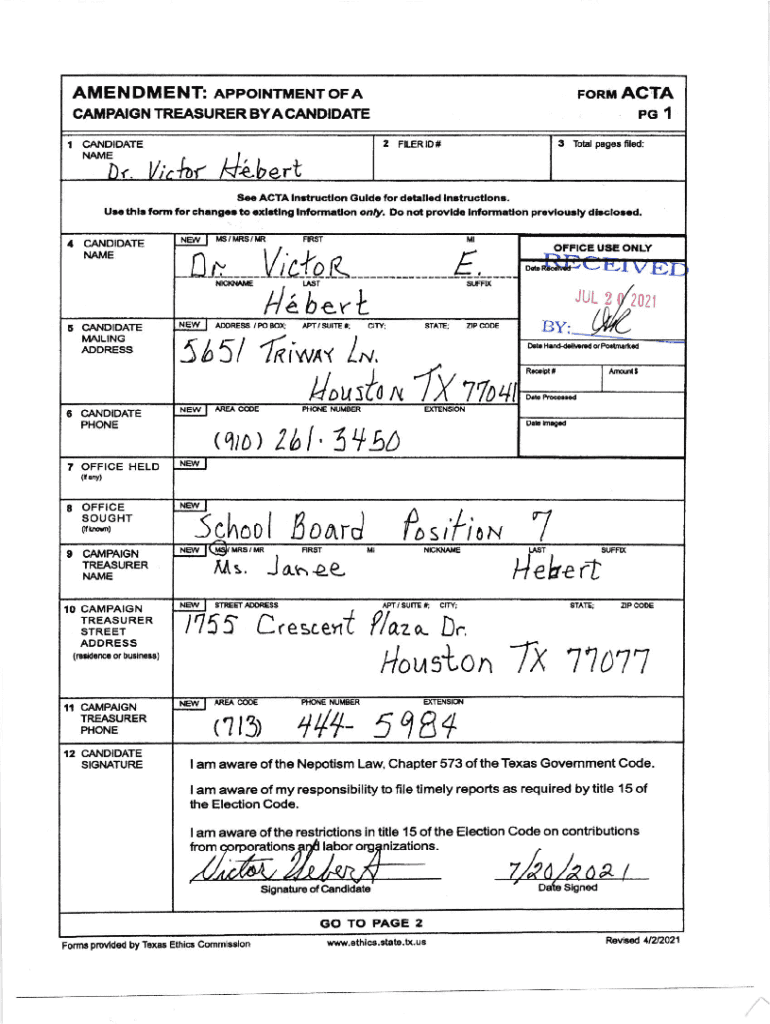 AMENDMENT: APPOINTMENT OF A
CAMPAIGN TREASURER BY A CANDIDATE
FORM ACTA
PG 1
1 CANDIDATE NAME
Dr. Victor Hébert
2 FILER ID #
3 Total pages filed:
See ACTA Instruction Guide for detailed instructions.
Use this form for changes to existing information only. Do not provide information previously disclosed.
4 CANDIDATE NAME
NEW MS / MRS / MR FIRST MI
Dr Victor E.
NICKNAME LAST SUFFIX
Hébert
OFFICE USE ONLY
Date Received
RECEIVED
JUL 20 2021
BY:
Date Hand-delivered or Postmarked
Receipt # Amount $
Date Processed
Date Imaged
5 CANDIDATE MAILING ADDRESS
NEW ADDRESS / PO BOX; APT / SUITE #; CITY; STATE; ZIP CODE
5651 Triway Ln.
Houston TX 77041
6 CANDIDATE PHONE
NEW AREA CODE PHONE NUMBER EXTENSION
(910) 261.3450
7 OFFICE HELD
(if any)
NEW
8 OFFICE SOUGHT
(if known)
NEW
School Board Position 7
9 CAMPAIGN TREASURER NAME
NEW MS / MRS / MR FIRST MI NICKNAME LAST SUFFIX
Ms. Janee Hebert
10 CAMPAIGN TREASURER STREET ADDRESS
(residence or business)
NEW STREET ADDRESS APT / SUITE #; CITY; STATE; ZIP CODE
1755 Crescent Plaza Dr.
Houston TX 77077
11 CAMPAIGN TREASURER PHONE
NEW AREA CODE PHONE NUMBER EXTENSION
(713) 444-5984
12 CANDIDATE SIGNATURE
I am aware of the Nepotism Law, Chapter 573 of the Texas Government Code.
I am aware of my responsibility to file timely reports as required by title 15 of
the Election Code.
I am aware of the restrictions in title 15 of the Election Code on contributions
from corporations and labor organizations.
Victor Hebert 7/20/2021
Signature of Candidate Date Signed
GO TO PAGE 2
Forms provided by Texas Ethics Commission www.ethics.state.tx.us Revised 4/2/2021